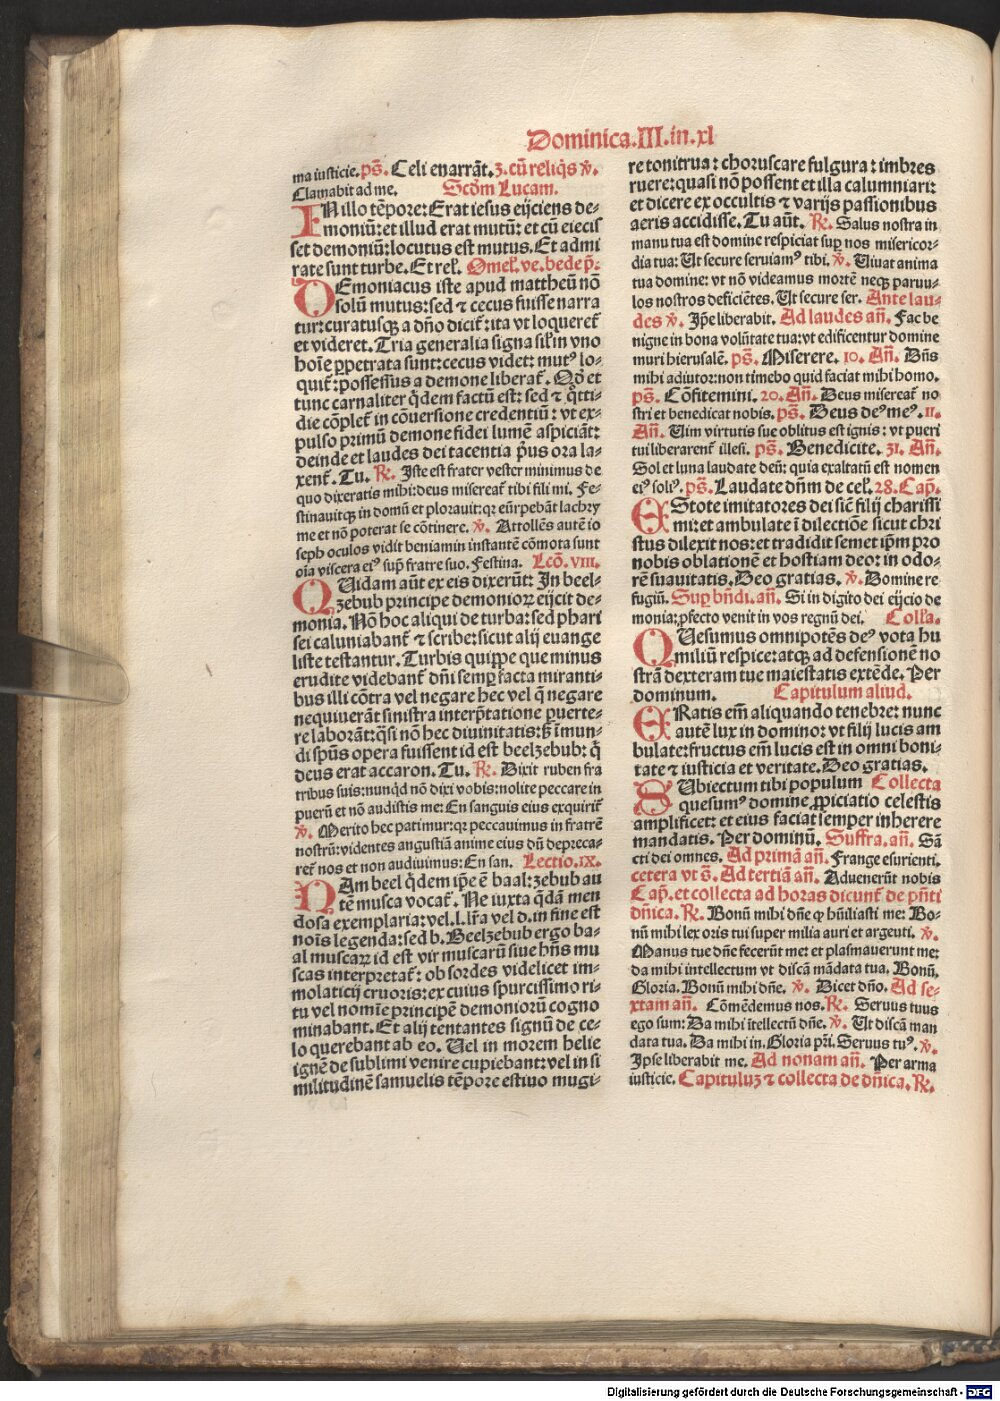 Dominica.III.in.xl
ma iusticie. ps̄. Celi enarrāt. 3. cū reliq̄s ℣.
Clamabit ad me. Scd̄m Lucam.
IN illo tēpore: Erat iesus eijciens de-
moniū: et illud erat mutū: et cū eiecis
set demoniū: locutus est mutus. Et admi
rate sunt turbe. Et rel̄. Omel̄. ve. bede p̄.
DEmoniacus iste apud mattheū nō
solū mutus: sed ⁊ cecus fuisse narra
tur: curatusqꝫ a dn̄o dicit̄: ita vt loqueret̄
et videret. Tria generalia signa sil̄ in vno
hoīe ꝑpetrata sunt: cecus videt: mutꝰ lo-
quit̄: possessus a demone liberat̄. Qd̄ et
tunc carnaliter q̄dem factū est: sed ⁊ q̄tti-
die cōplet̄ in cōuersione credentiū: vt ex-
pulso primū demone fidei lumē aspiciāt:
deinde et laudes dei tacentia p̄us ora la-
xent̄. Tu. ℟. Iste est frater vester minimus de
quo dixeratis mihi: deus misereat̄ tibi fili mi. Fe-
stinauitqꝫ in domū et plorauit: qꝛ eū̄pebāt lachry
me et nō poterat se cōtinere. ℣. Attollēs autē io
seph oculos vidit beniamin instantē cōmota sunt
oīa viscera eiꝰ suꝑ fratre suo. Festina. Lcō. VIII.
QUidam aūt ex eis dixerūt: In beel-
zebub principe demonioꝝ eijcit de-
monia. Nō hoc aliqui de turba: sed phari
sei caluniabant̄ ⁊ scribe: sicut alij euange
liste testantur. Turbis quippe que minus
erudite videbant̄ dn̄i semꝑ facta miranti-
bus illi cōtra vel negare hec vel q̄ negare
nequiuerāt sinistra interp̄tatione ꝑuerte-
re laborāt: q̄si nō hec diuinitatis: sꝫ īmun-
di sp̄us opera fuissent id est beelzebub: q̄
deus erat accaron. Tu. ℟. Dixit ruben fra
tribus suis: nunqd̄ nō dixi vobis: nolite peccare in
puerū et nō audistis me: En sanguis eius exquirit̄
℣. Merito hec patimur: qꝛ peccauimus in fratrē
nostrū: videntes angustiā anime eius dū depreca-
ret̄ nos et non audiuimus: En san. Lectio. IX.
NAm beel q̄dem ip̄e ē baal: zebub au
tē musca vocat̄. Ne iuxta q̄dā men
dosa exemplaria: vel .l. lr̄a vel d. in fine est
noīs legenda: sed b. Beelzebub ergo ba-
al muscaꝝ id est vir muscarū siue hn̄s mu
scas interpretat̄: ob sordes videlicet im-
molaticij cruoris: ex cuius spurcissimo ri-
tu vel nomīe principē demoniorū cogno
minabant. Et alij tentantes signū de ce-
lo querebant ab eo. Uel in morem helie
ignē de sublimi venire cupiebant: vel in si
militudinē samuelis tēpore estiuo mugi-
re tonitrua: choruscare fulgura: imbres
ruere: quasi nō possent et illa calumniari:
et dicere ex occultis ⁊ varijs passionibus
aeris accidisse. Tu aūt. ℟. Salus nostra in
manu tua est domine respiciat suꝑ nos misericor-
dia tua: Ut secure seruiamꝰ tibi. ℣. Uiuat anima
tua domine: vt nō videamus mortē neqꝫ paruu-
los nostros deficiētes. Ut secure ser. Ante lau-
des ℣. Ip̄e liberabit. Ad laudes an̄. Fac be
nigne in bona volūtate tua: vt edificentur domine
muri hierusalē. ps̄. Miserere. 10. An̄. Dn̄s
mihi adiutor: non timebo quid faciat mihi homo.
ps̄. Cōfitemini. 20. An̄. Deus misereat̄ no
stri et benedicat nobis. ps̄. Deus deꝰ meꝰ. 11.
An̄. Uim virtutis sue oblitus est ignis: vt pueri
tui liberarent̄ illesi. ps̄. Benedicite. 31. An̄.
Sol et luna laudate deū: quia exaltatū est nomen
eiꝰ soliꝰ. ps̄. Laudate dn̄m de cel̄. 28. Cap̄.
EStote imitatores dei sic̄ filij charissi
mi: et ambulate ī dilectiōe sicut chri
stus dilexit nos: et tradidit semet ip̄m pro
nobis oblationē et hostiam deo: in odo-
rē suauitatis. Deo gratias. ℣. Domine re
fugiū. Suꝑ bn̄di. an̄. Si in digito dei eijcio de
monia: ꝓfecto venit in vos regnū dei. Coll̄a.
QUesumus omnipotēs deꝰ vota hu
miliū respice: atqꝫ ad defensionē no
strā dexteram tue maiestatis extēde. Per
dominum. Capitulum aliud.
ERatis em̄ aliquando tenebre: nunc
autē lux in domino: vt filij lucis am
bulate: fructus em̄ lucis est in omni boni-
tate ⁊ iusticia et veritate. Deo gratias.
SUbiectum tibi populum Collecta
quesumꝰ domine ꝓpiciatio celestis
amplificet: et eius faciat semper inherere
mandatis. Per dominū. Suffra. an̄. Sā
cti dei omnes. Ad primā an̄. Frange esurienti.
cetera vt s̄. Ad tertiā an̄. Aduenerūt nobis
Cap̄. et collecta ad horas dicunt̄ de p̄nti
dn̄ica. ℟. Bonū mihi dn̄e ꝙ hūiliasti me: Bo-
nū mihi lex oris tui super milia auri et argenti. ℣.
Manus tue dn̄e fecerūt me: et plasmauerunt me:
da mihi intellectum vt discā mādata tua. Bonū.
Gloria. Bonū mihi dn̄e. ℣. Dicet dn̄o. Ad se-
xtam an̄. Cōmēdemus nos. ℟. Seruus tuus
ego sum: Da mihi ītellectū dn̄e. ℣. Ut discā man
data tua. Da mihi in. Gloria pr̄i. Seruus tuꝰ. ℣.
Ipse liberabit me. Ad nonam an̄. Per arma
iusticie. Capituluꝫ ⁊ collecta de dn̄ica. ℟.
Digitalisierung gefördert durch die Deutsche Forschungsgemeinschaft - DFG